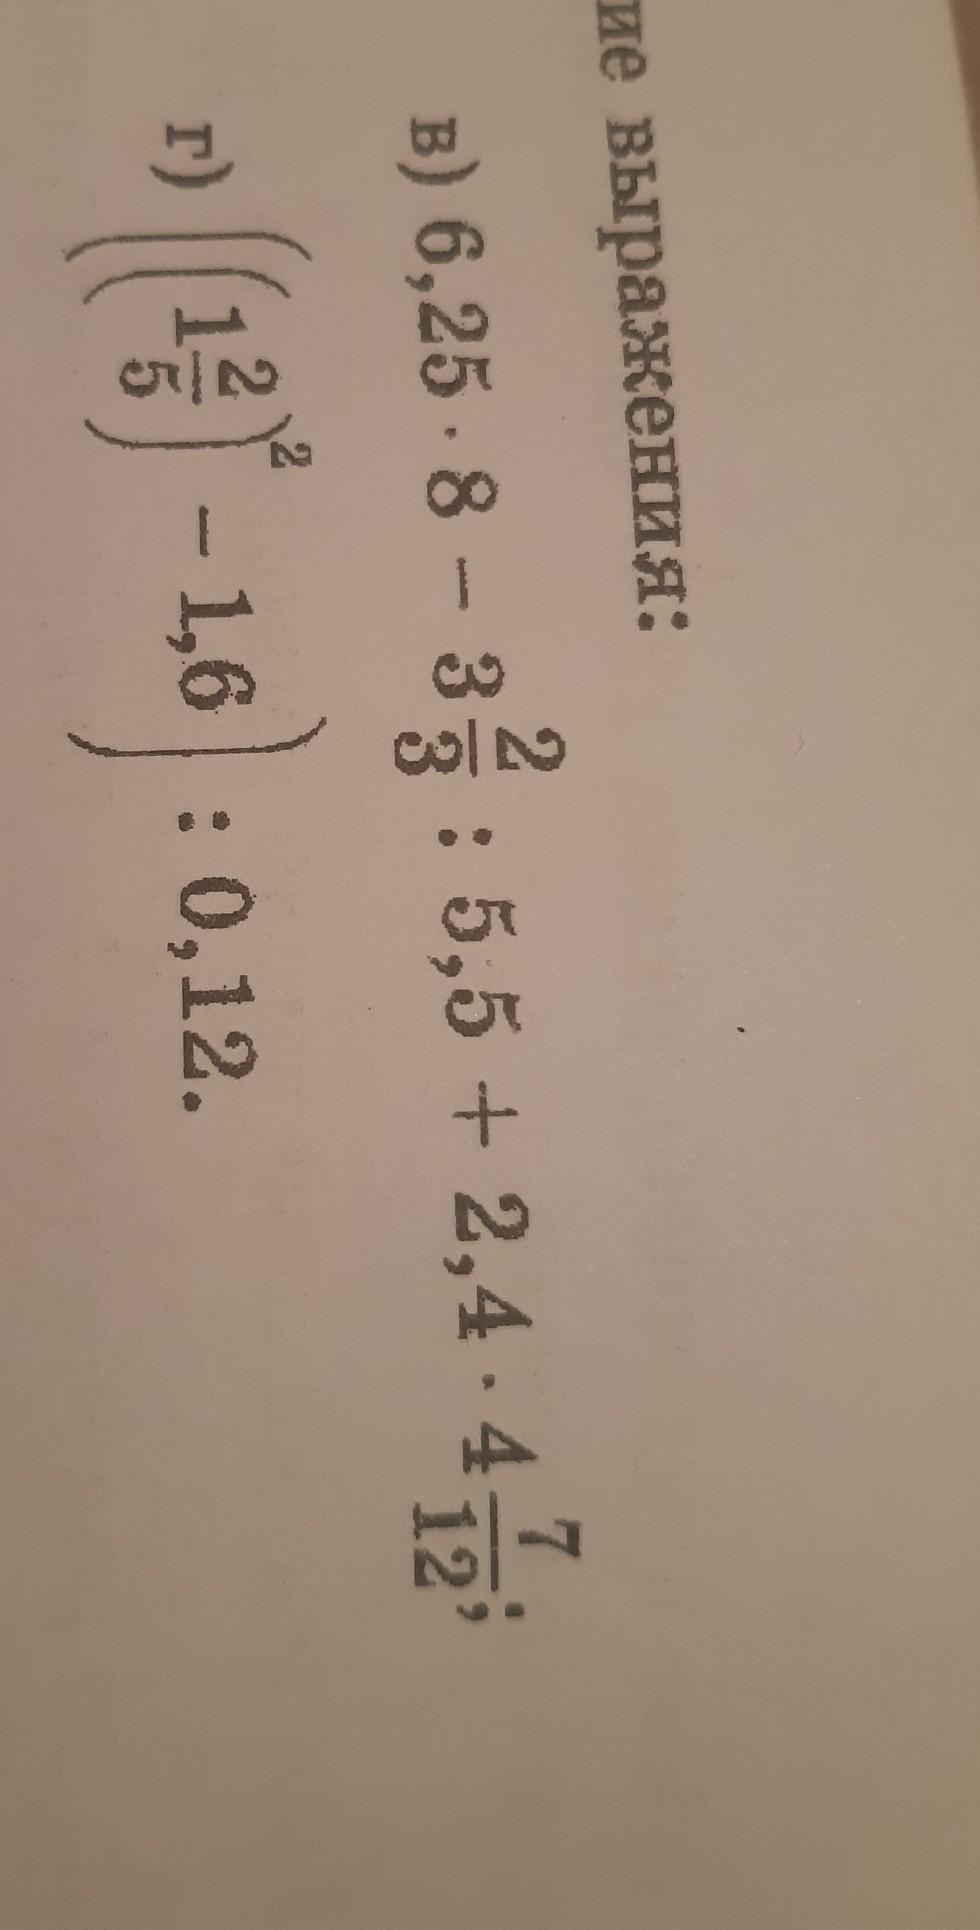 ие выражения:
в) 6,25 · 8 − 3 2/3 : 5,5 + 2,4 · 4 7/12;
г) ((1 2/5)² − 1,6) : 0,12.